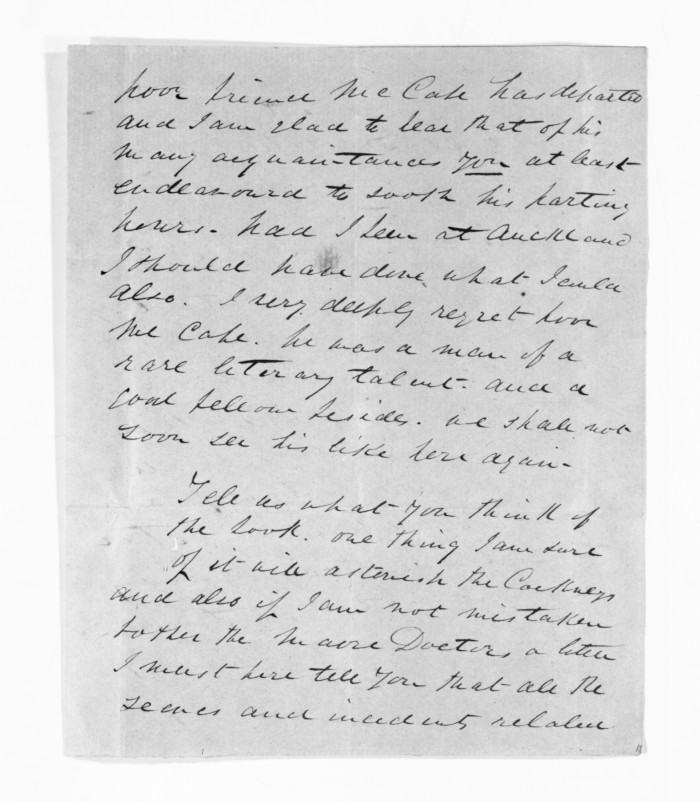 poor friend Mc Cabe has departed
and I am glad to hear that of his
many acquaintances you at least
endeavourd to sooth his parting
hours. had I been at Auckland
I should have done what I could
also. I very deeply regret poor
Mc Cabe. he was a man of a
rare literary talent. and a
good fellow besides. we shall not
soon see his like here again.
Tell us what you think of
the book. one thing I am sure
of it will astonish the Cockneys
and also if I am not mistaken
bother the Maori Doctors a little
I must here tell you that all the
scenes and incidents related